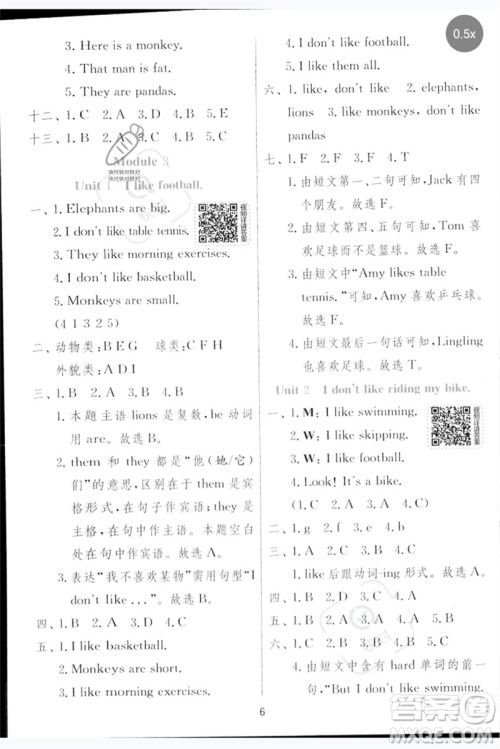 3. Here is a monkey.
4. That man is fat.
5. They are pandas.
十二、1. C  2. A  3. D  4. B  5. E
十三、1. B  2. C  3. A  4. B  5. A
Module 3
Unit 1  I like football.
一、1. Elephants are big.
2. I don't like table tennis.
3. They like morning exercises.
4. I don't like basketball.
5. Monkeys are small.
(4 1 3 2 5)
二、动物类: B E G  球类: C F H
外貌类: A D I
三、1. B  2. A  3. B
1. 本题主语 lions 是复数, be 动词
用 are。故选 B。
2. them 和 they 都是“他(她/它)
们”的意思, 区别是: them 是宾
格形式, 在句子作宾语; they 是
主格, 在句中作主语。本题空白
处在句中作宾语。故选 A。
3. 表达“我不喜欢某物”需用句型“I
don't like ...”。故选 B。
四、1. B  2. A  3. A  4. A  5. B
五、1. I like basketball.
2. Monkeys are short.
3. I like morning exercises.
4. I don't like football.
5. I like them all.
六、1. like, don't like  2. elephants,
lions  3. like monkeys, don't like
pandas
七、1. F  2. F  3. F  4. F
1. 由短文第一、二句可知, Jack 有四
个朋友。故选 F。
2. 由短文第四、五句可知, Tom 喜
欢足球而不是篮球。故选 F。
3. 由短文中“Amy likes table
tennis.”可知, Amy 喜欢乒乓球。
故选 F。
4. 由短文最后一句话可知, Lingling
也喜欢足球。故选 F。
Unit 2  I don't like riding my bike.
一、1. M: I like swimming.
2. W: I like skipping.
3. W: I like football.
4. Look! It's a bike.
(1. C  2. A  3. D  4. B)
二、1. g  2. f
三、1. A  2. A  3. B
1. like 后跟动词-ing 形式。故选 A。
四、1. B  2. A  3. A  4. A  5. B
五、1. B  2. D  3. C  4. A
六、1. C  2. B  3. A  4. B
4. 由短文中含有 hard 单词的前一
句, “But I don't like swimming.
6
0.5x
视频详讲答案
快对快对快对
快对快对快对
答案圈
MXQE.COM